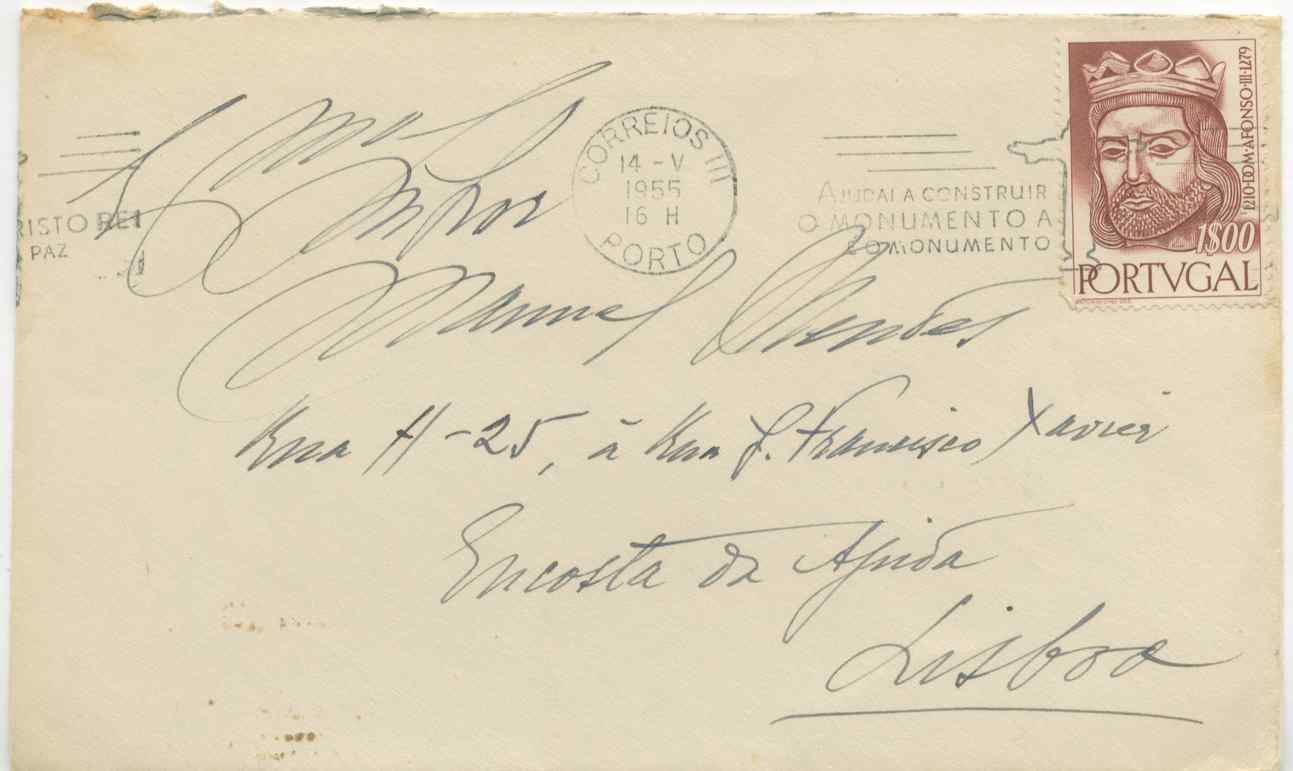 CORREIOS III
14 - V
1955
16 H
PORTO
RISTO REI
PAZ
AJUDAI A CONSTRUIR
O MONUMENTO A
MONUMENTO
1210·DOM·AFONSO·III·1279
1$00
PORTVGAL
Manuel Mendes
Rua H-25, à Rua S. Francisco Xavier
Encosta da Ajuda
Lisboa